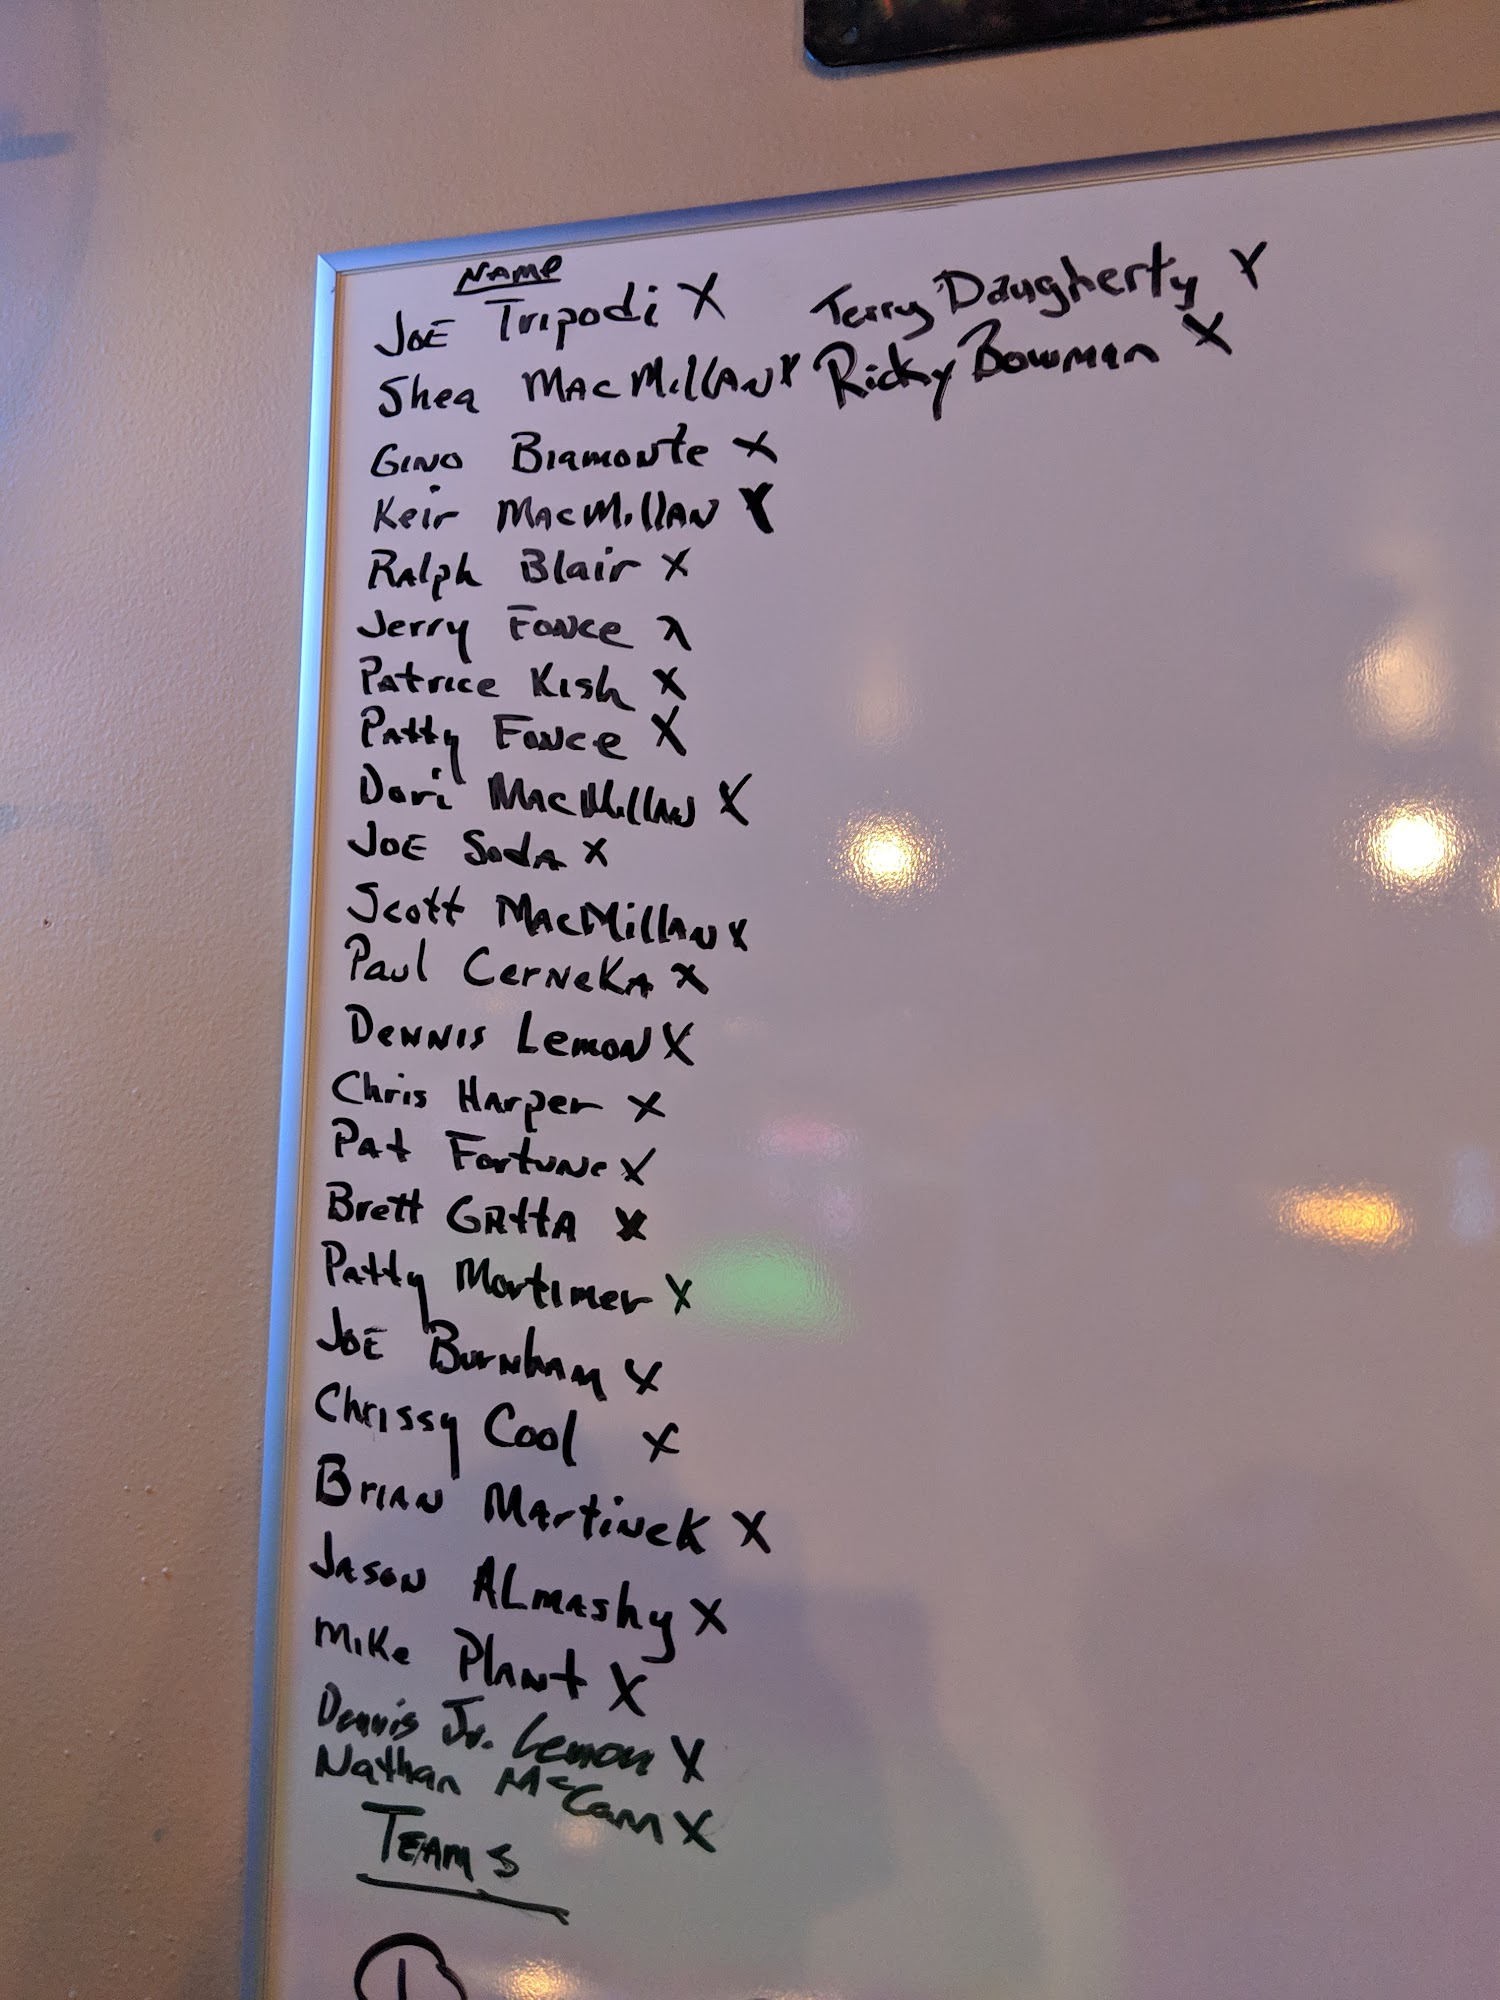 NAME
JOE Tripodi X
Shea MacMillan X
Gino Biamonte X
Keir MacMillan X
Ralph Blair X
Jerry Fonce X
Patrice Kish X
Patty Fonce X
Dori MacMillan X
JOE Soda X
Scott MacMillan X
Paul Cerneka X
Dennis Lemon X
Chris Harper X
Pat Fortune X
Brett Gatta X
Patty Mortimer X
JOE Burnham X
Chrissy Cool X
Brian Martinek X
Jason Almashy X
Mike Plant X
Dennis Jr. Lemon X
Nathan McCam X
TEAMS
1
Terry Daugherty X
Ricky Bowman X